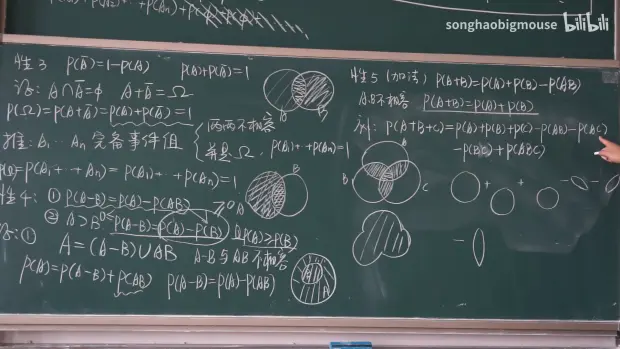 songhaobigmouse bilibili
性3 P(Ā)=1-P(A) P(A)+P(Ā)=1
A∩Ā=ϕ A+Ā=Ω
P(Ω)=P(A+Ā)=P(A)+P(Ā)=1
推: A₁…An 完备事件组 { 两两不相容
并是Ω, P(A₁)+…+P(An)=1
P(Ω)=P(A₁+…+An)=P(A₁)+…+P(An)=1
性4: ① P(A-B)=P(A)-P(AB)
② A⊃B P(A-B)=P(A)-P(B) 且P(A)≥P(B)
≥0
证: ① A=(A-B)∪AB A-B与AB不相容
P(A)=P(A-B)+P(AB) P(A-B)=P(A)-P(AB)
A B
A
性5 (加法) P(A+B)=P(A)+P(B)-P(AB)
A.B不相容 P(A+B)=P(A)+P(B)
例: P(A+B+C)=P(A)+P(B)+P(C)-P(AB)-P(AC)
-P(BC)+P(ABC)
A
B C
+ + - -
-